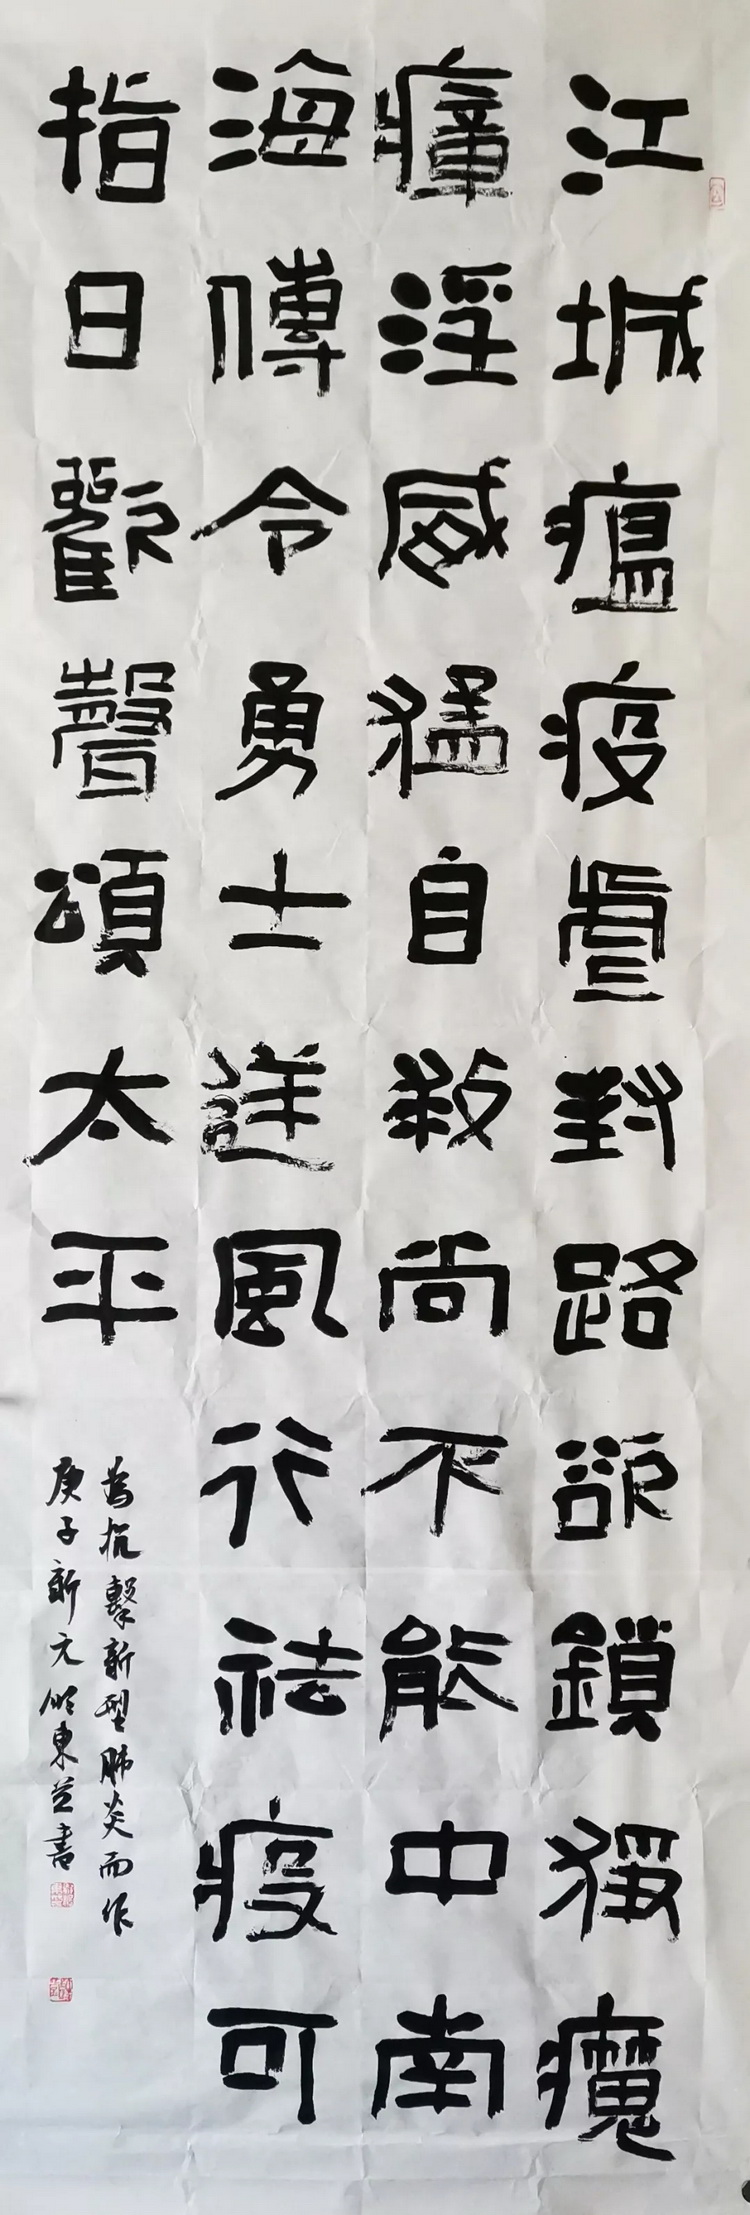 江城瘟疫虐封路欲鎖猙魔
瘴淫威猛自救尚不能中南
海傳令勇士逆風行祛疫可
指日歡聲頌太平
為抗擊新型肺炎而作
庚子新元東書